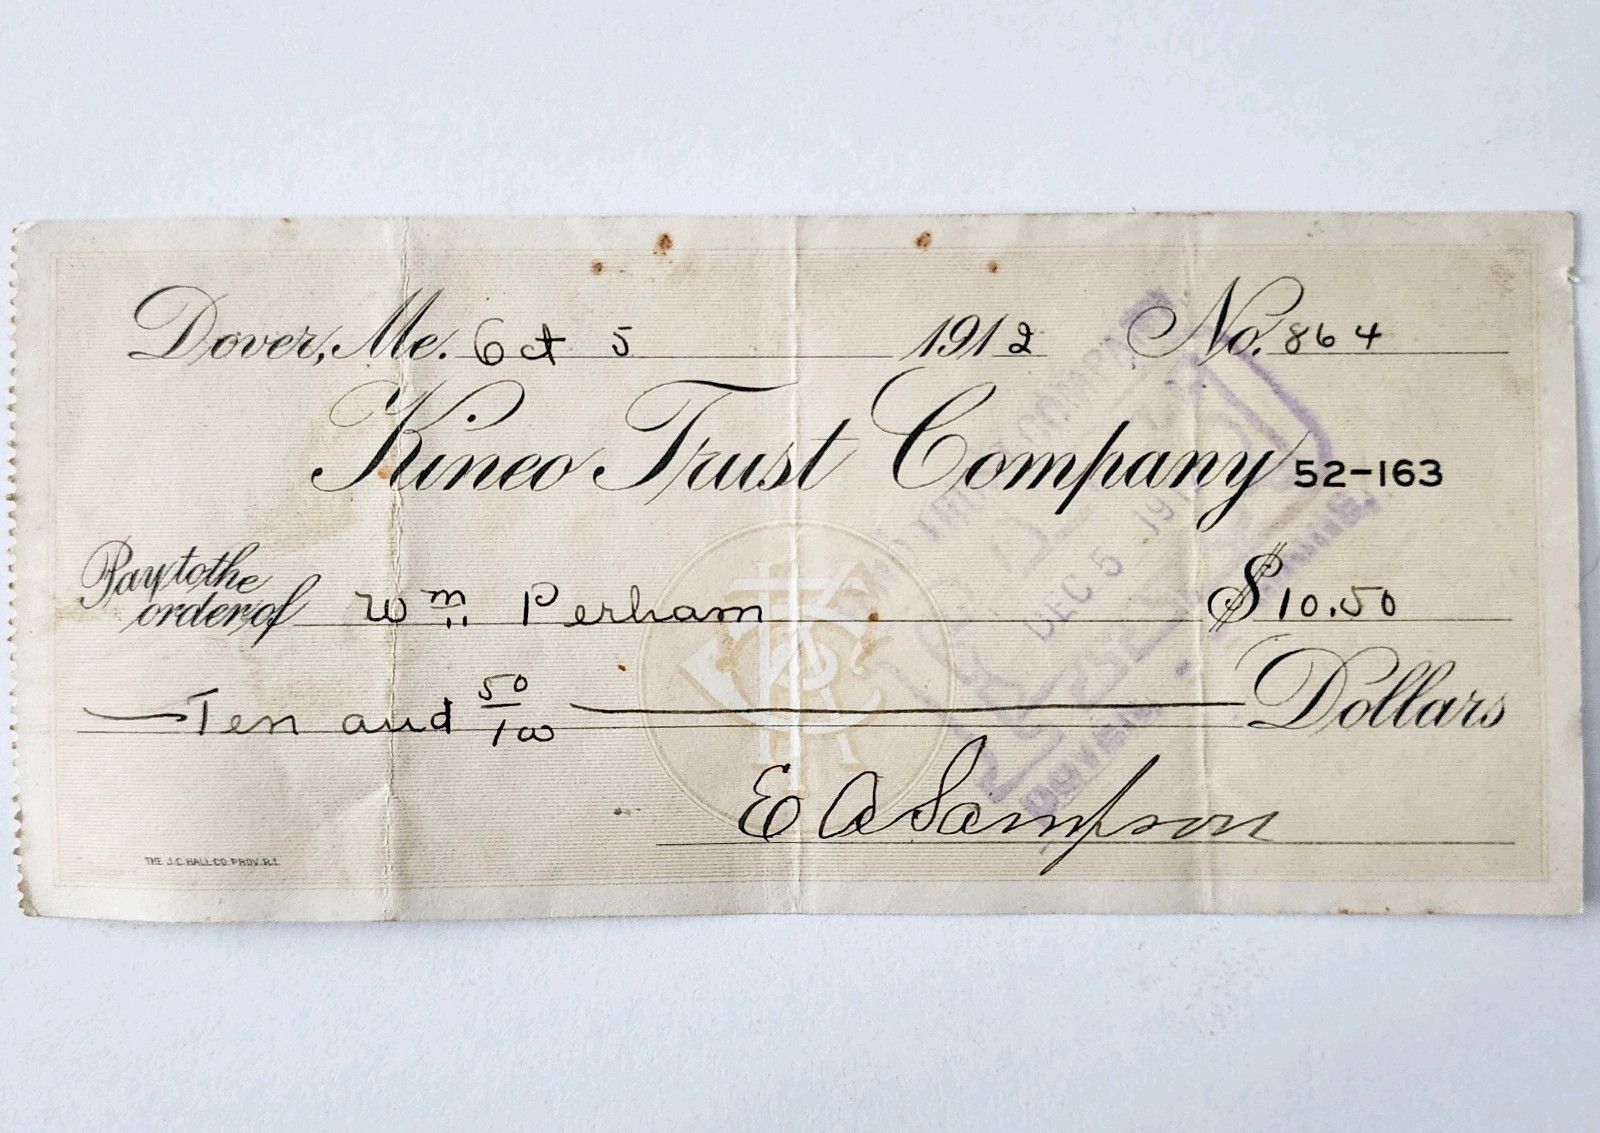 Dover, Me. Oct 5 1912 No. 864
Kineo Trust Company 52-163
Pay to the
order of Wm Perham $10.50
Ten and 50/100 Dollars
E A Sampson
THE J.C. HALL CO. PROV. R.I.
TRUST COMPANY
DEC 5 191